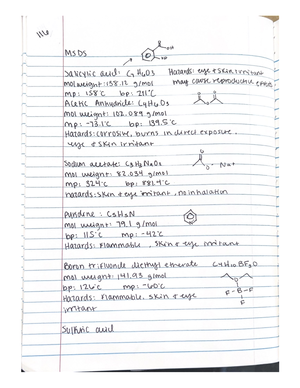 116
MSDS
OH
OH
Salicylic acid: C7H6O3 Hazards: eye & skin irritant
mol weight: 138.12 g/mol may cause reproductive effects
mp: 158°C bp: 211°C
Acetic Anhydride: C4H6O3
mol weight: 102.089 g/mol
mp: -73.1°C bp: 139.5°C
Hazards: corrosive, burns in direct exposure,
eye & skin irritant
Sodium acetate: C2H3NaO2
O- Na+
mol weight: 82.034 g/mol
mp: 324°C bp: 881.4°C
hazards: skin & eye irritant, no inhalation
Pyridine: C5H5N
mol weight: 79.1 g/mol
bp: 115°C mp: -42°C
Hazards: Flammable, skin & eye irritant
Boron trifluoride diethyl etherate C4H10BF3O
mol weight: 141.93 g/mol
bp: 126°C mp: -60°C
Hazards: Flammable, skin & eye
irritant
F-B-F
F
Sulfuric acid